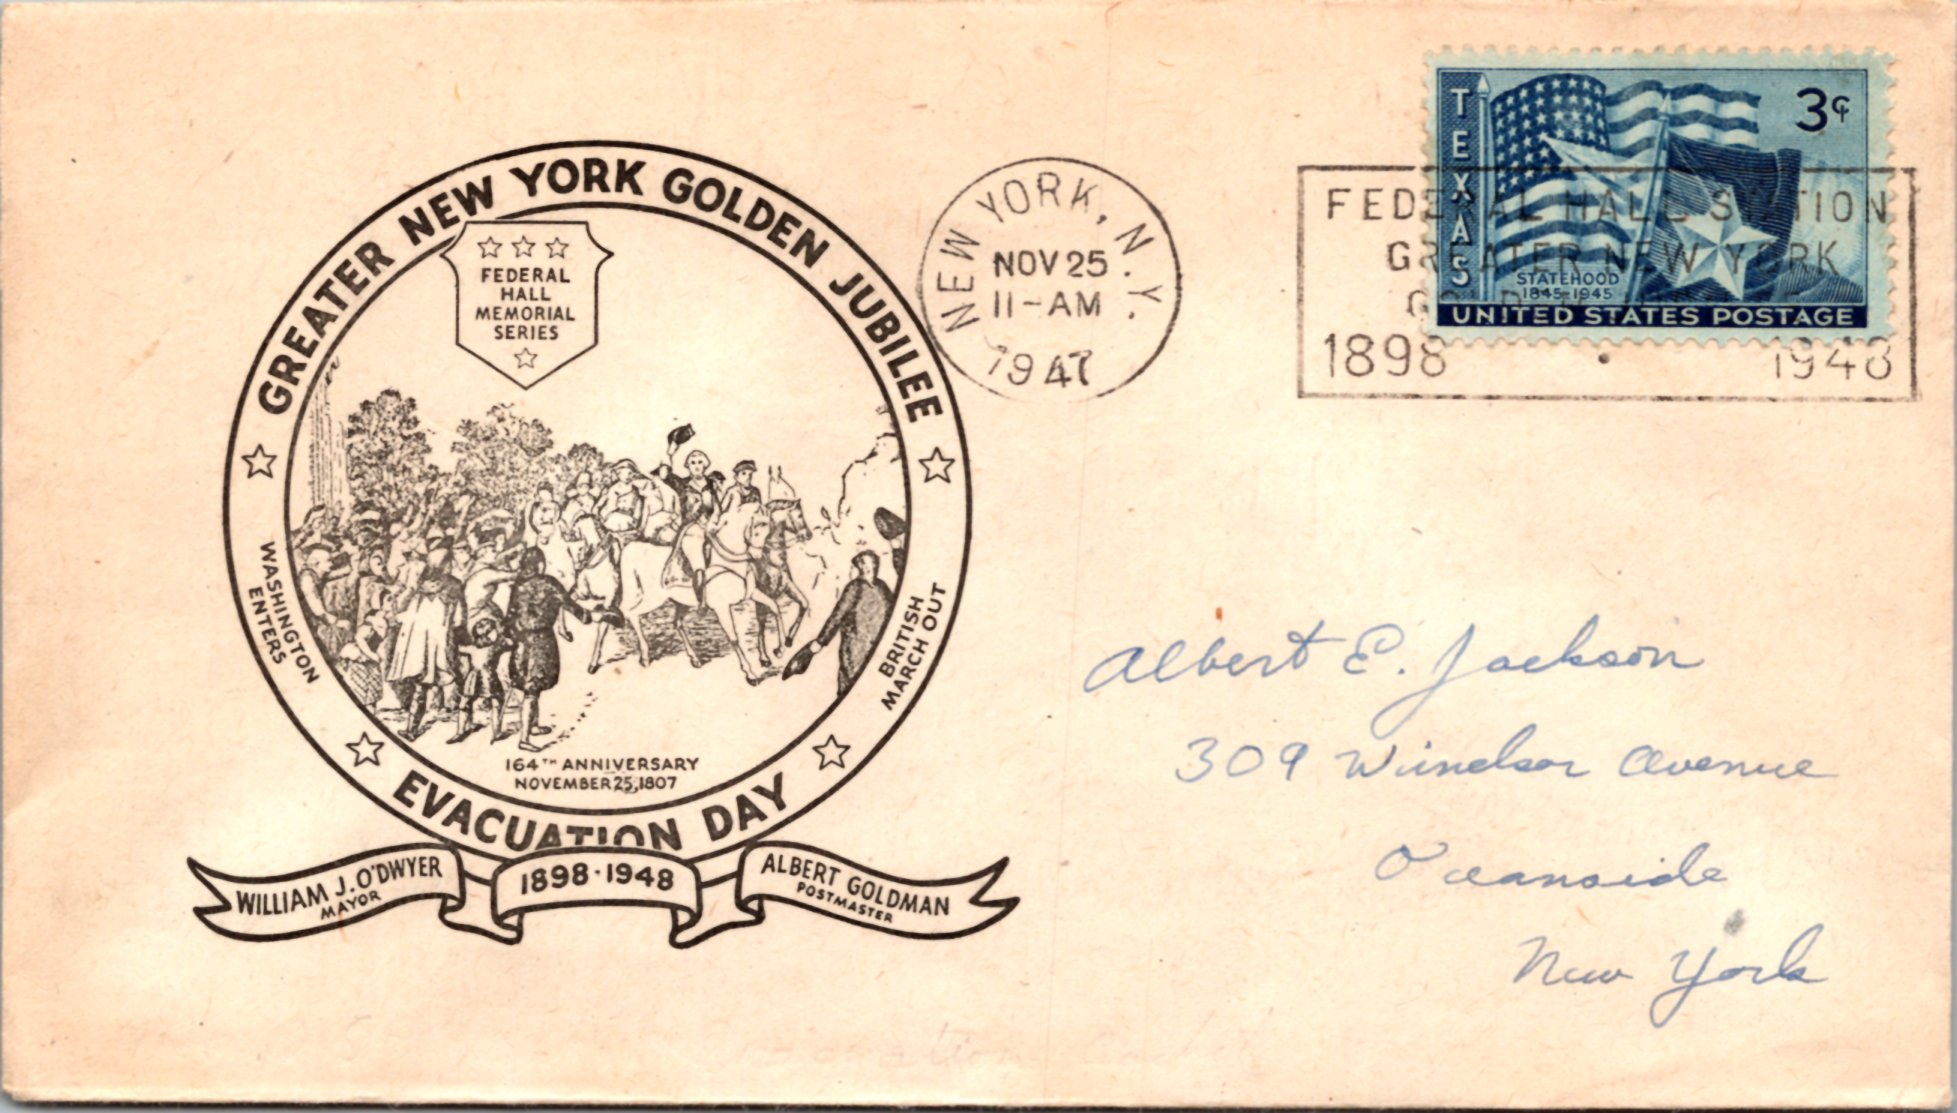 GREATER NEW YORK GOLDEN JUBILEE
FEDERAL
HALL
MEMORIAL
SERIES
WASHINGTON
ENTERS
BRITISH
MARCH OUT
164TH ANNIVERSARY
NOVEMBER 25, 1807
EVACUATION DAY
WILLIAM J. O'DWYER
MAYOR
1898 · 1948
ALBERT GOLDMAN
POSTMASTER
NEW YORK, N.Y.
NOV 25
11-AM
1947
FEDERAL HALL STATION
GREATER NEW YORK
1898 1948
TEXAS
3¢
STATEHOOD
1845-1945
UNITED STATES POSTAGE
Albert E. Jackson
309 Windsor Avenue
Oceanside
New York